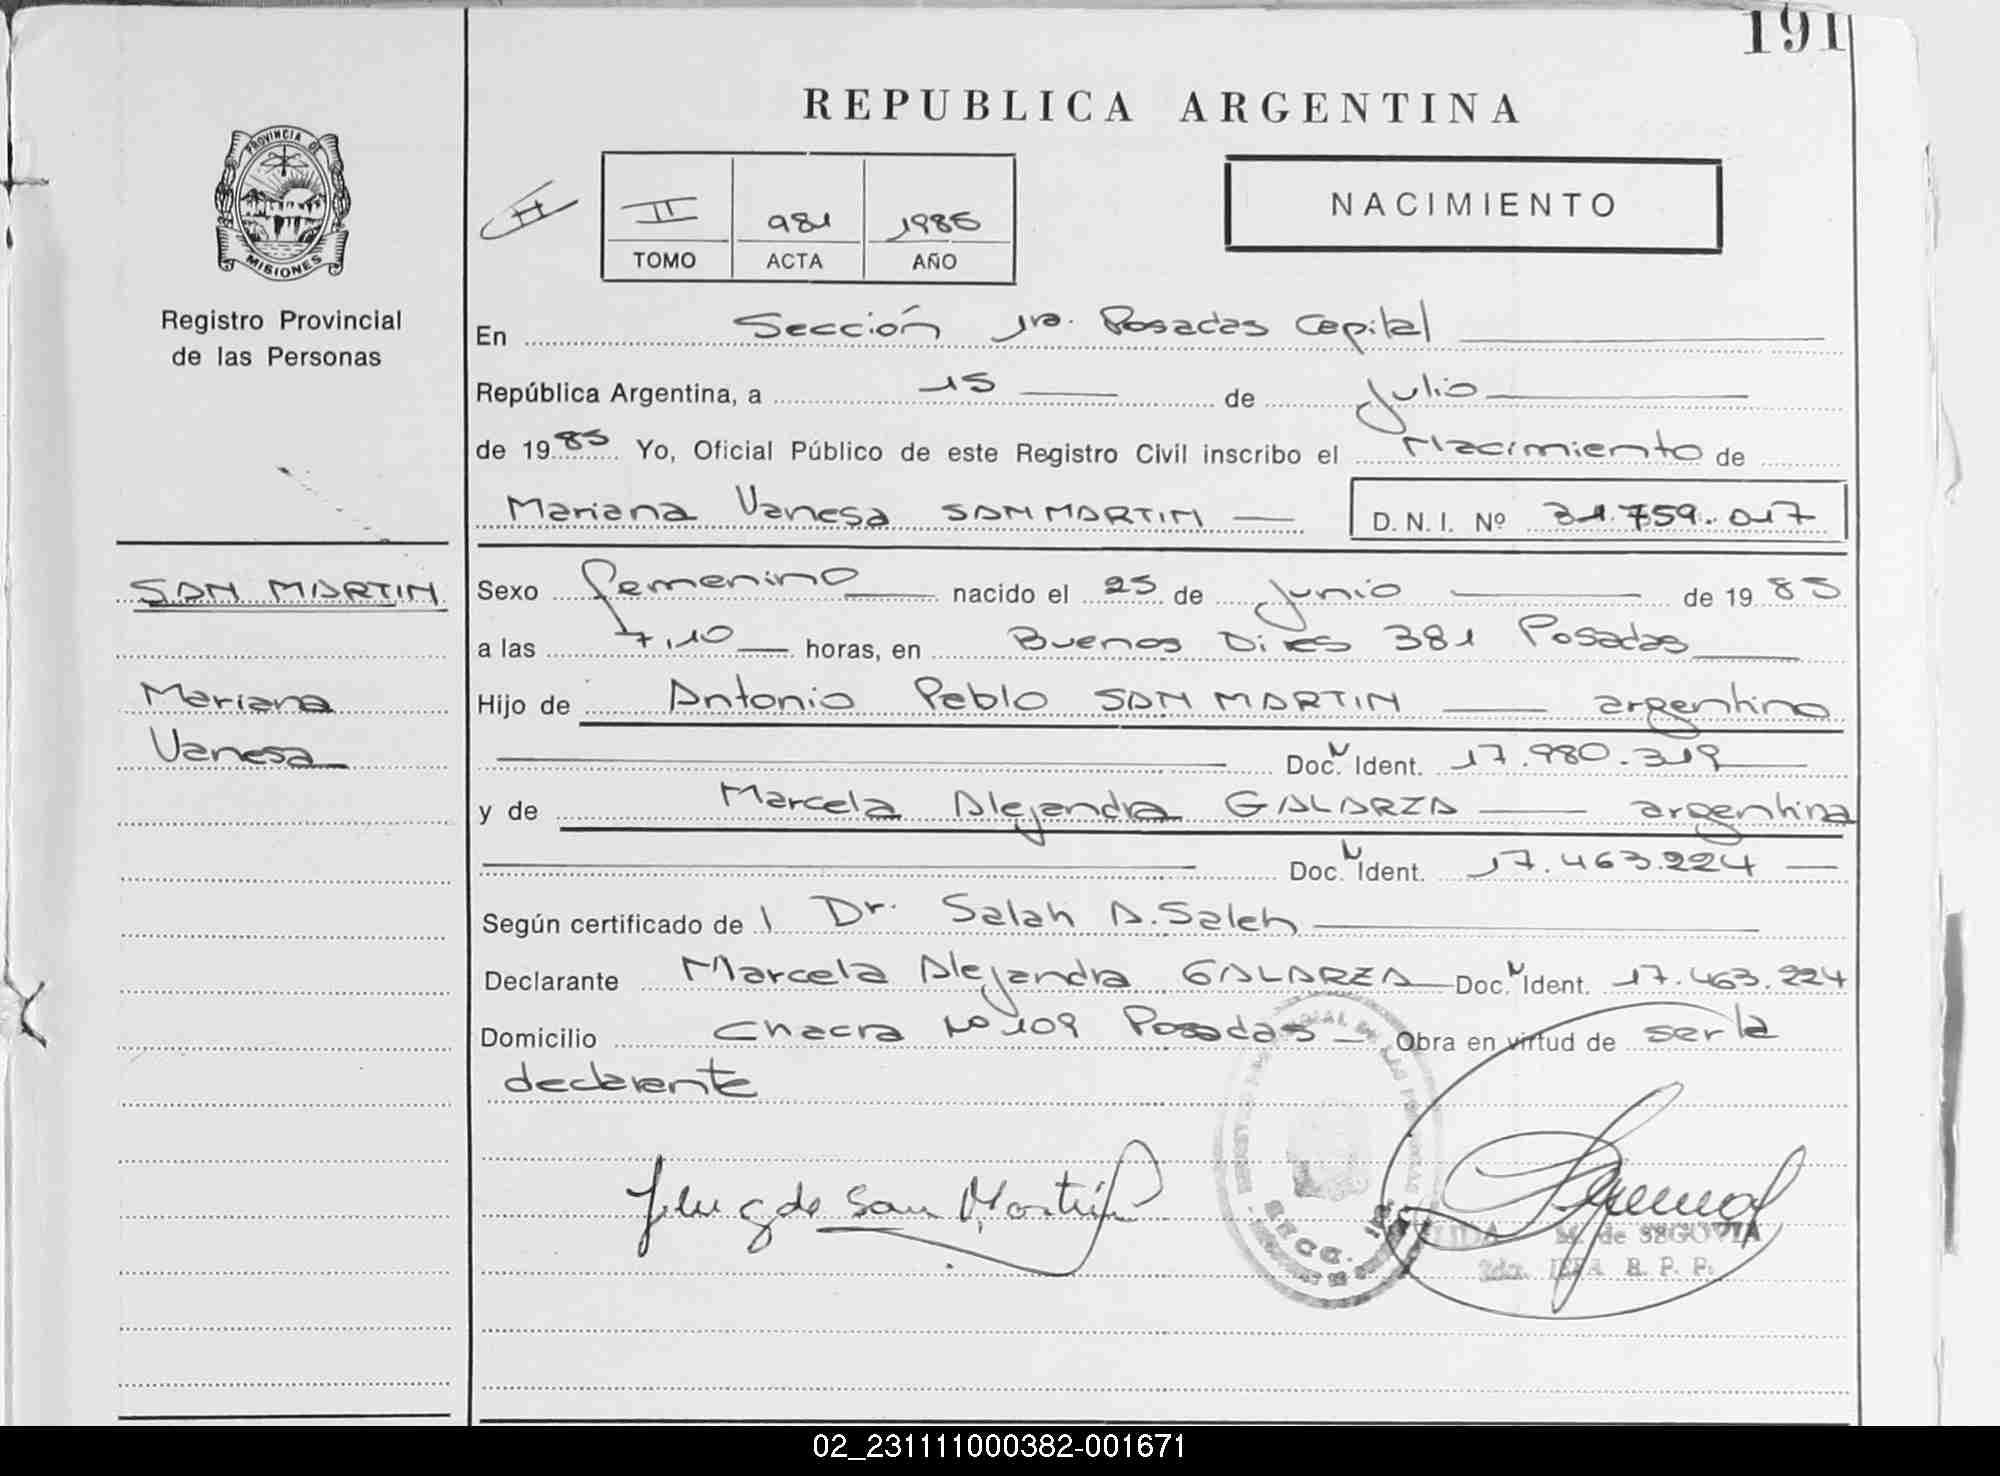 191
REPUBLICA ARGENTINA
PROVINCIA DE
MISIONES
Registro Provincial
de las Personas
II
II 981 1985
TOMO ACTA AÑO
NACIMIENTO
En Sección 1ra. Posadas Capital
República Argentina, a 15 de Julio
de 1985 Yo, Oficial Público de este Registro Civil inscribo el Nacimiento de
Mariana Vanesa SAN MARTIN D. N. I. Nº 31.759.017
SAN MARTIN
Mariana
Vanesa
Sexo femenino nacido el 25 de Junio de 1985
a las 7,10 horas, en Buenos Aires 381 Posadas
Hijo de Antonio Pablo SAN MARTIN argentino
Doc. N Ident. 17.980.319
y de Marcela Alejandra GALARZA argentina
Doc. N Ident. 17.463.224
Según certificado de l Dr. Salah A. Saleh
Declarante Marcela Alejandra GALARZA Doc. N Ident. 17.463.224
Domicilio Chacra Nº 109 Posadas Obra en virtud de ser la
declarante
g de San Martín
SECC. 1ra
M. de SEGOVIA
2da. JEFA R. P. P.
02_231111000382-001671